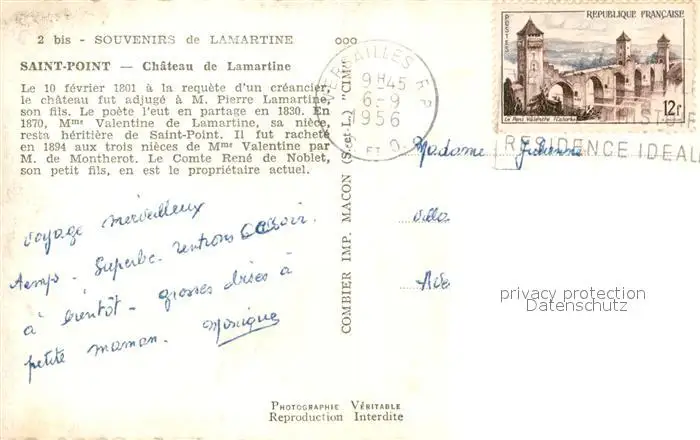 2 bis - SOUVENIRS de LAMARTINE
SAINT-POINT — Château de Lamartine
Le 10 février 1801 à la requête d'un créancier,
le château fut adjugé à M. Pierre Lamartine,
son fils. Le poète l'eut en partage en 1830. En
1870, Mme Valentine de Lamartine, sa nièce,
resta héritière de Saint-Point. Il fut racheté
en 1894 aux trois nièces de Mme Valentine par
M. de Montherot. Le Comte René de Noblet,
son petit fils, en est le propriétaire actuel.
voyage merveilleux
temps - Superbe - rentrons ce soir.
à bientôt - grosses bises à
petite maman. Monique
COMBIER IMP. MACON (S.-et-L.) "CIM"
VERSAILLES R.P.
9H45
6-9
1956
ET O.
REPUBLIQUE FRANÇAISE
POSTES
Le Pont Valentré (Cahors)
12F
RESIDENCE IDEALE
Madame Julienne
villa
Ave
privacy protection
Datenschutz
PHOTOGRAPHIE VÉRITABLE
Reproduction Interdite